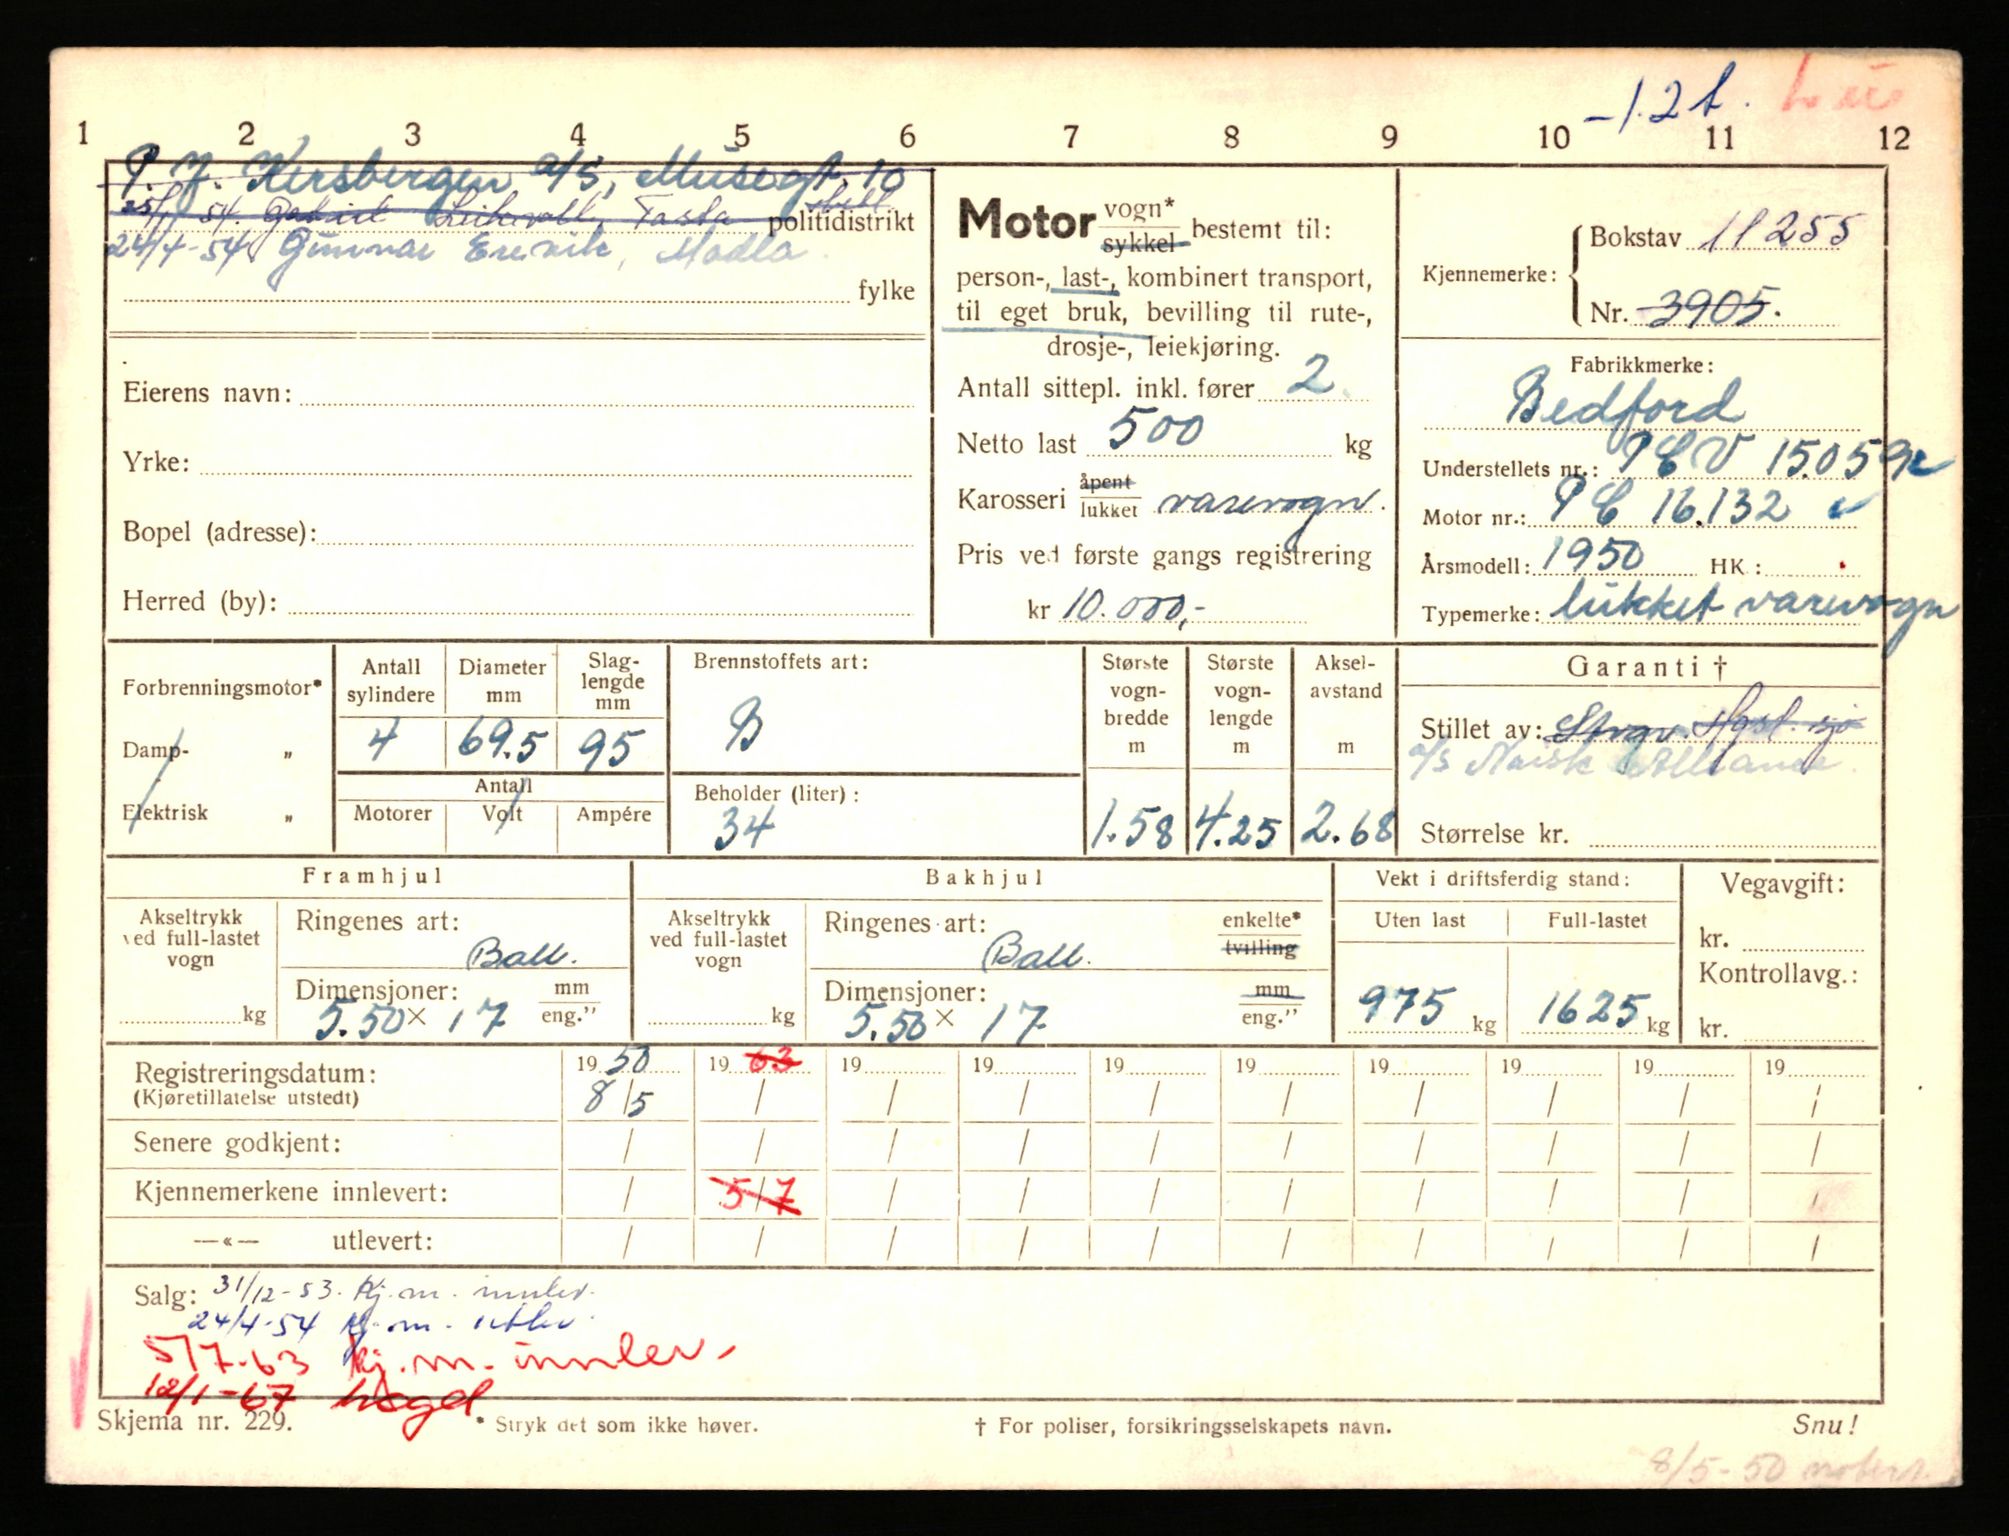 -1.2 t.
1 2 3 4 5 6 7 8 9 10 11 12
P. J. Kersbergen a/s, Musegt. 10
54 Tasta politidistrikt
24/4-54 Gunnar Madla
fylke
Eierens navn:
Yrke:
Bopel (adresse):
Herred (by):
Motor vogn* sykkel bestemt til:
person-, last-, kombinert transport,
til eget bruk, bevilling til rute-,
drosje-, leiekjøring.
Antall sittepl. inkl. fører 2
Netto last 500 kg
Karosseri åpent lukket varevogn.
Pris ved første gangs registrering
kr 10.000,-
Kjennemerke: Bokstav 255
Nr. 3905.
Fabrikkmerke:
Bedford
Understellets nr.: PCV 15.059
Motor nr.: PC 16.132
Årsmodell: 1950 HK.:
Typemerke: lukket varevogn
Forbrenningsmotor*
Damp- „
Elektrisk „
Antall sylindere 4
Diameter mm 69.5
Slaglengde mm 95
Antall
Motorer Volt Ampére
Brennstoffets art:
B
Beholder (liter):
34
Største vogn-bredde m 1.58
Største vogn-lengde m 4.25
Aksel-avstand m 2.68
Garanti †
Stillet av:
a/s Norsk Alliance.
Størrelse kr.
Framhjul
Akseltrykk ved full-lastet vogn
kg
Ringenes art:
Ball.
Dimensjoner: mm eng."
5.50 × 17
Bakhjul
Akseltrykk ved full-lastet vogn
kg
Ringenes art: enkelte* tvilling
Ball.
Dimensjoner: mm eng."
5.50 × 17
Vekt i driftsferdig stand:
Uten last Full-lastet
975 kg 1625 kg
Vegavgift:
kr.
Kontrollavg.:
kr.
Registreringsdatum: 19 50 19 63 19 19 19 19 19 19 19 19
(Kjøretillatelse utstedt) 8/5
Senere godkjent:
Kjennemerkene innlevert: 5/7
—«— utlevert:
Salg: 31/12-53. Kj.m. innlev.
24/4-54 Kj.m. utlev.
5/7-63 kj.m. innlev.
12/1-67 hogd
Skjema nr. 229. * Stryk det som ikke høver. † For poliser, forsikringsselskapets navn. Snu!
8/5-50